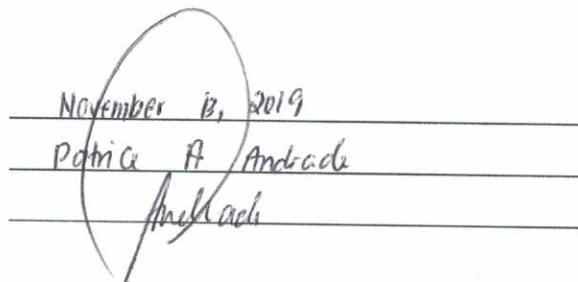 November 13, 2019
Patrica A Andrade
Andrade